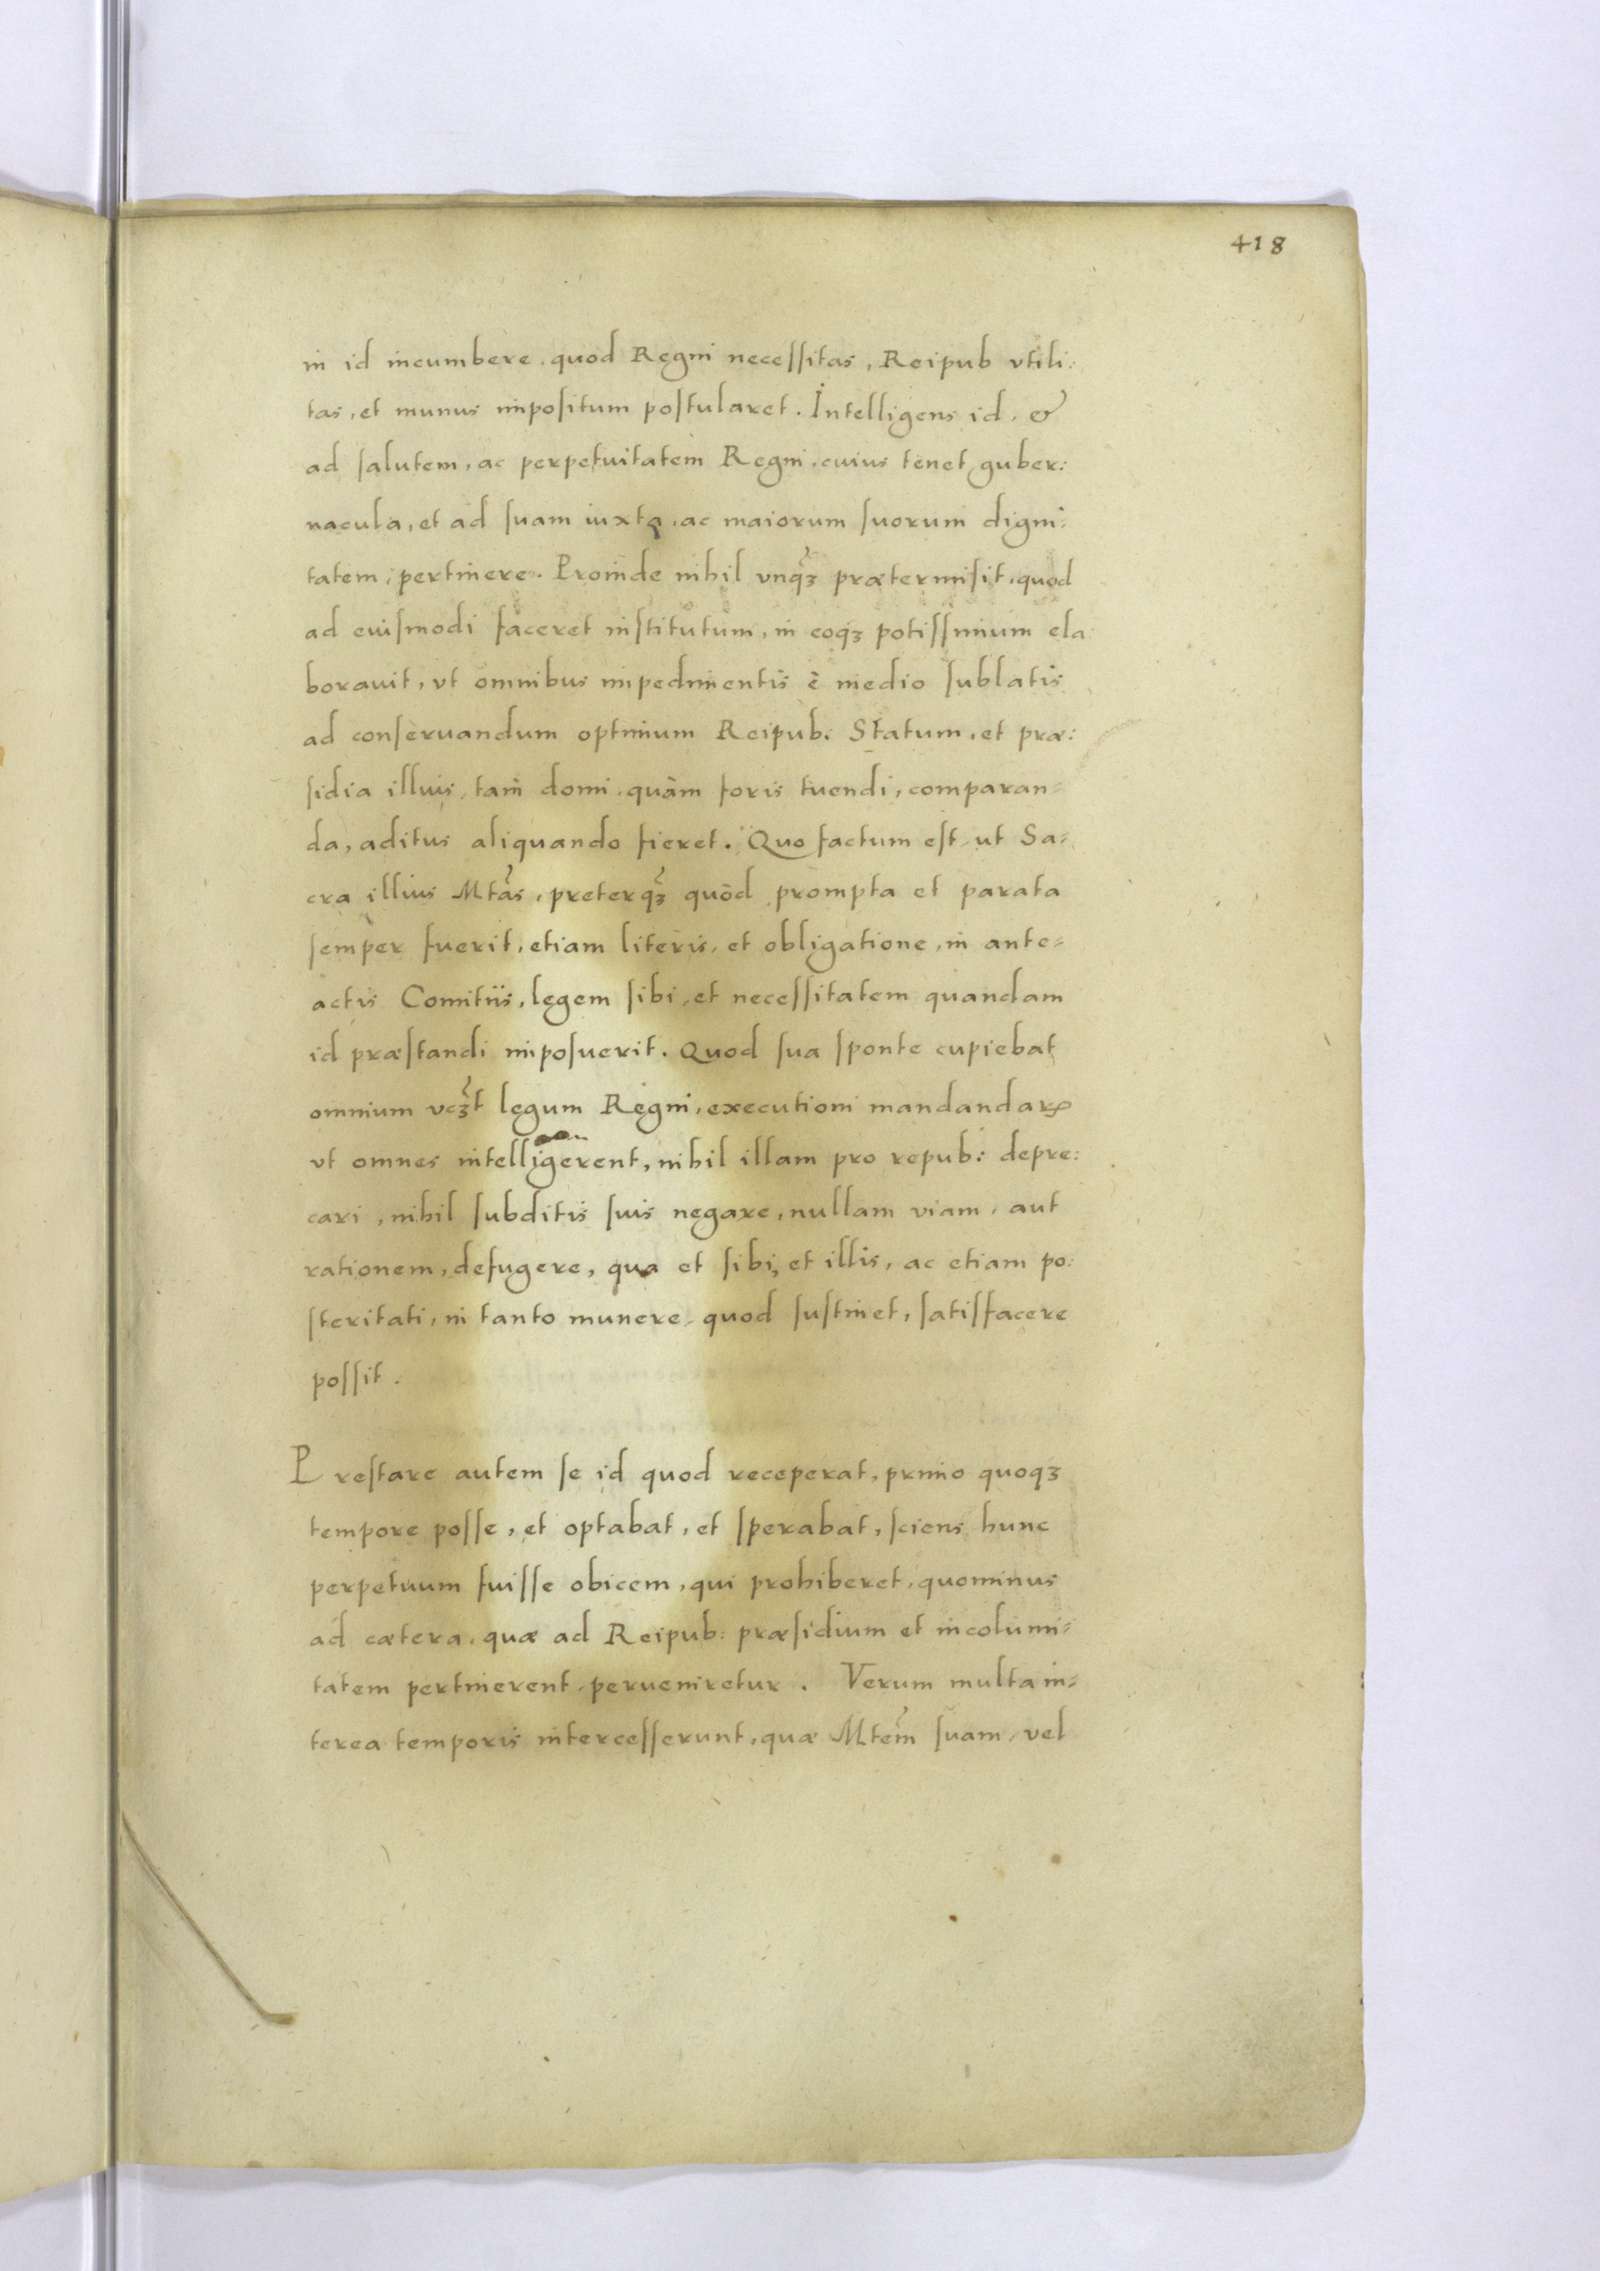 418
in id incumbere, quod Regni necessitas, Reipub vtili:
tas, et munus impositum postularet. Intelligens id, &
ad salutem, ac perpetuitatem Regni, cuius tenet guber:
nacula, et ad suam iuxta, ac maiorum suorum digni:
tatem, pertinere. Proinde nihil vnqꝫ prætermisit, quod
ad euismodi faceret institutum, in eoqꝫ potissimum ela:
borauit, vt omnibus impedimentis è medio sublatis
ad conseruandum optimum Reipub. Statum, et præ:
sidia illius, tam domi, quàm foris tuendi, comparan=
da, aditus aliquando fieret. Quo factum est, ut Sa=
cra illius Mtas, preterqꝫ quòd prompta et parata
semper fuerit, etiam literis, et obligatione, in ante=
actis Comitiis, legem sibi, et necessitatem quandam
id præstandi imposuerit. Quod sua sponte cupiebat
omnium vcꝫt legum Regni, executioni mandandaꝝ
vt omnes intelligerent, nihil illam pro repub: depre:
cari, nihil subditis suis negare, nullam viam, aut
rationem, defugere, qua et sibi, et illis, ac etiam po:
steritati, in tanto munere, quod sustinet, satisfacere
possit.
Prestare autem se id quod receperat, primo quoqꝫ
tempore posse, et optabat, et sperabat, sciens hunc
perpetuum fuisse obicem, qui prohiberet, quominus
ad cætera, quæ ad Reipub: præsidium et incolumi=
tatem pertinerent, perueniretur. Verum multa in=
terea temporis intercesserunt, quæ Mtem suam, vel